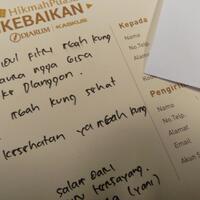 HikmahPua
KEBAIKAN
DJARUM KASKUS
IDUL FITRI MBAH KUNG
NGGA BISA
KE DLANGGON.
MBAH KUNG SEHAT
KESEHATAN YA MBAH KUNG
SALAM DARI
TERSAYANG.
(YANI)
Kepada
Nama
No Telp.
Alamat
Pengiri
Nama
No. Telp
Alamat
Email
Akun S